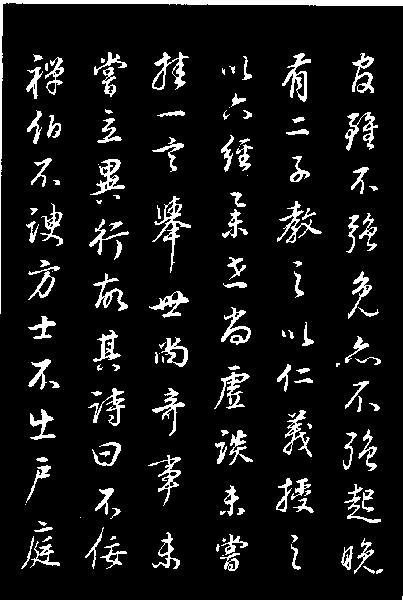 官雖不強免亦不強起晚
有二子教之以仁義授之
以六經舉世尚虛談未嘗
掛一言舉世尚奇事未
嘗立異行故其詩曰不佞
禪伯不諛方士不出戶庭